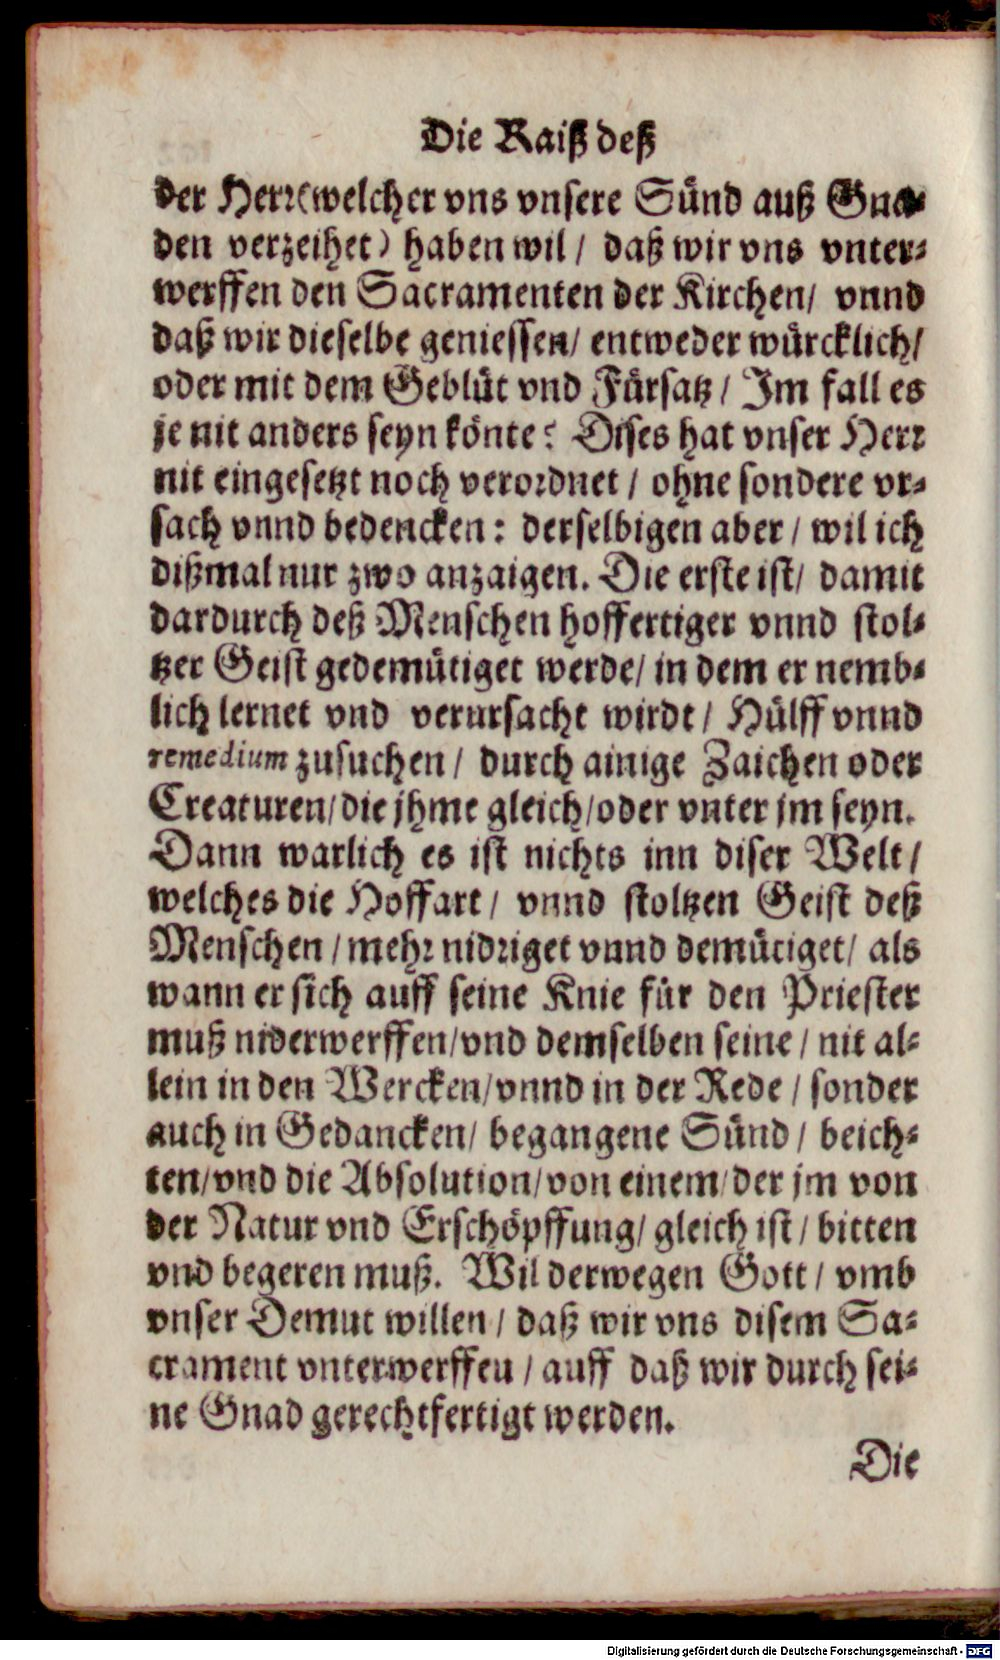 Die Raiß deß
der Herr (welcher vns vnsere Sünd auß Gna-
den verzeihet) haben wil / daß wir vns vnter-
werffen den Sacramenten der Kirchen / vnnd
daß wir dieselbe geniessen / entweder würcklich /
oder mit dem Geblüt vnd Fürsatz / Im fall es
je nit anders seyn könte: Dises hat vnser Herr
nit eingesetzt noch verordnet / ohne sondere vr-
sach vnnd bedencken: derselbigen aber / wil ich
dißmal nur zwo anzaigen. Die erste ist / damit
dardurch deß Menschen hoffertiger vnnd stol-
tzer Geist gedemütiget werde / in dem er nemb-
lich lernet vnd verursacht wirdt / Hülff vnnd
remedium zusuchen / durch ainige Zaichen oder
Creaturen / die jhme gleich / oder vnter jm seyn.
Dann warlich es ist nichts inn diser Welt /
welches die Hoffart / vnnd stoltzen Geist deß
Menschen / mehr nidriget vnnd demütiget / als
wann er sich auff seine Knie für den Priester
muß niderwerffen / vnd demselben seine / nit al-
lein in den Wercken / vnnd in der Rede / sonder
auch in Gedancken / begangene Sünd / beich-
ten / vnd die Absolution / von einem / der jm von
der Natur vnd Erschöpffung / gleich ist / bitten
vnd begeren muß. Wil derwegen Gott / vmb
vnser Demut willen / daß wir vns disem Sa-
crament vnterwerffen / auff daß wir durch sei-
ne Gnad gerechtfertigt werden.
Die
Digitalisierung gefördert durch die Deutsche Forschungsgemeinschaft - DFG